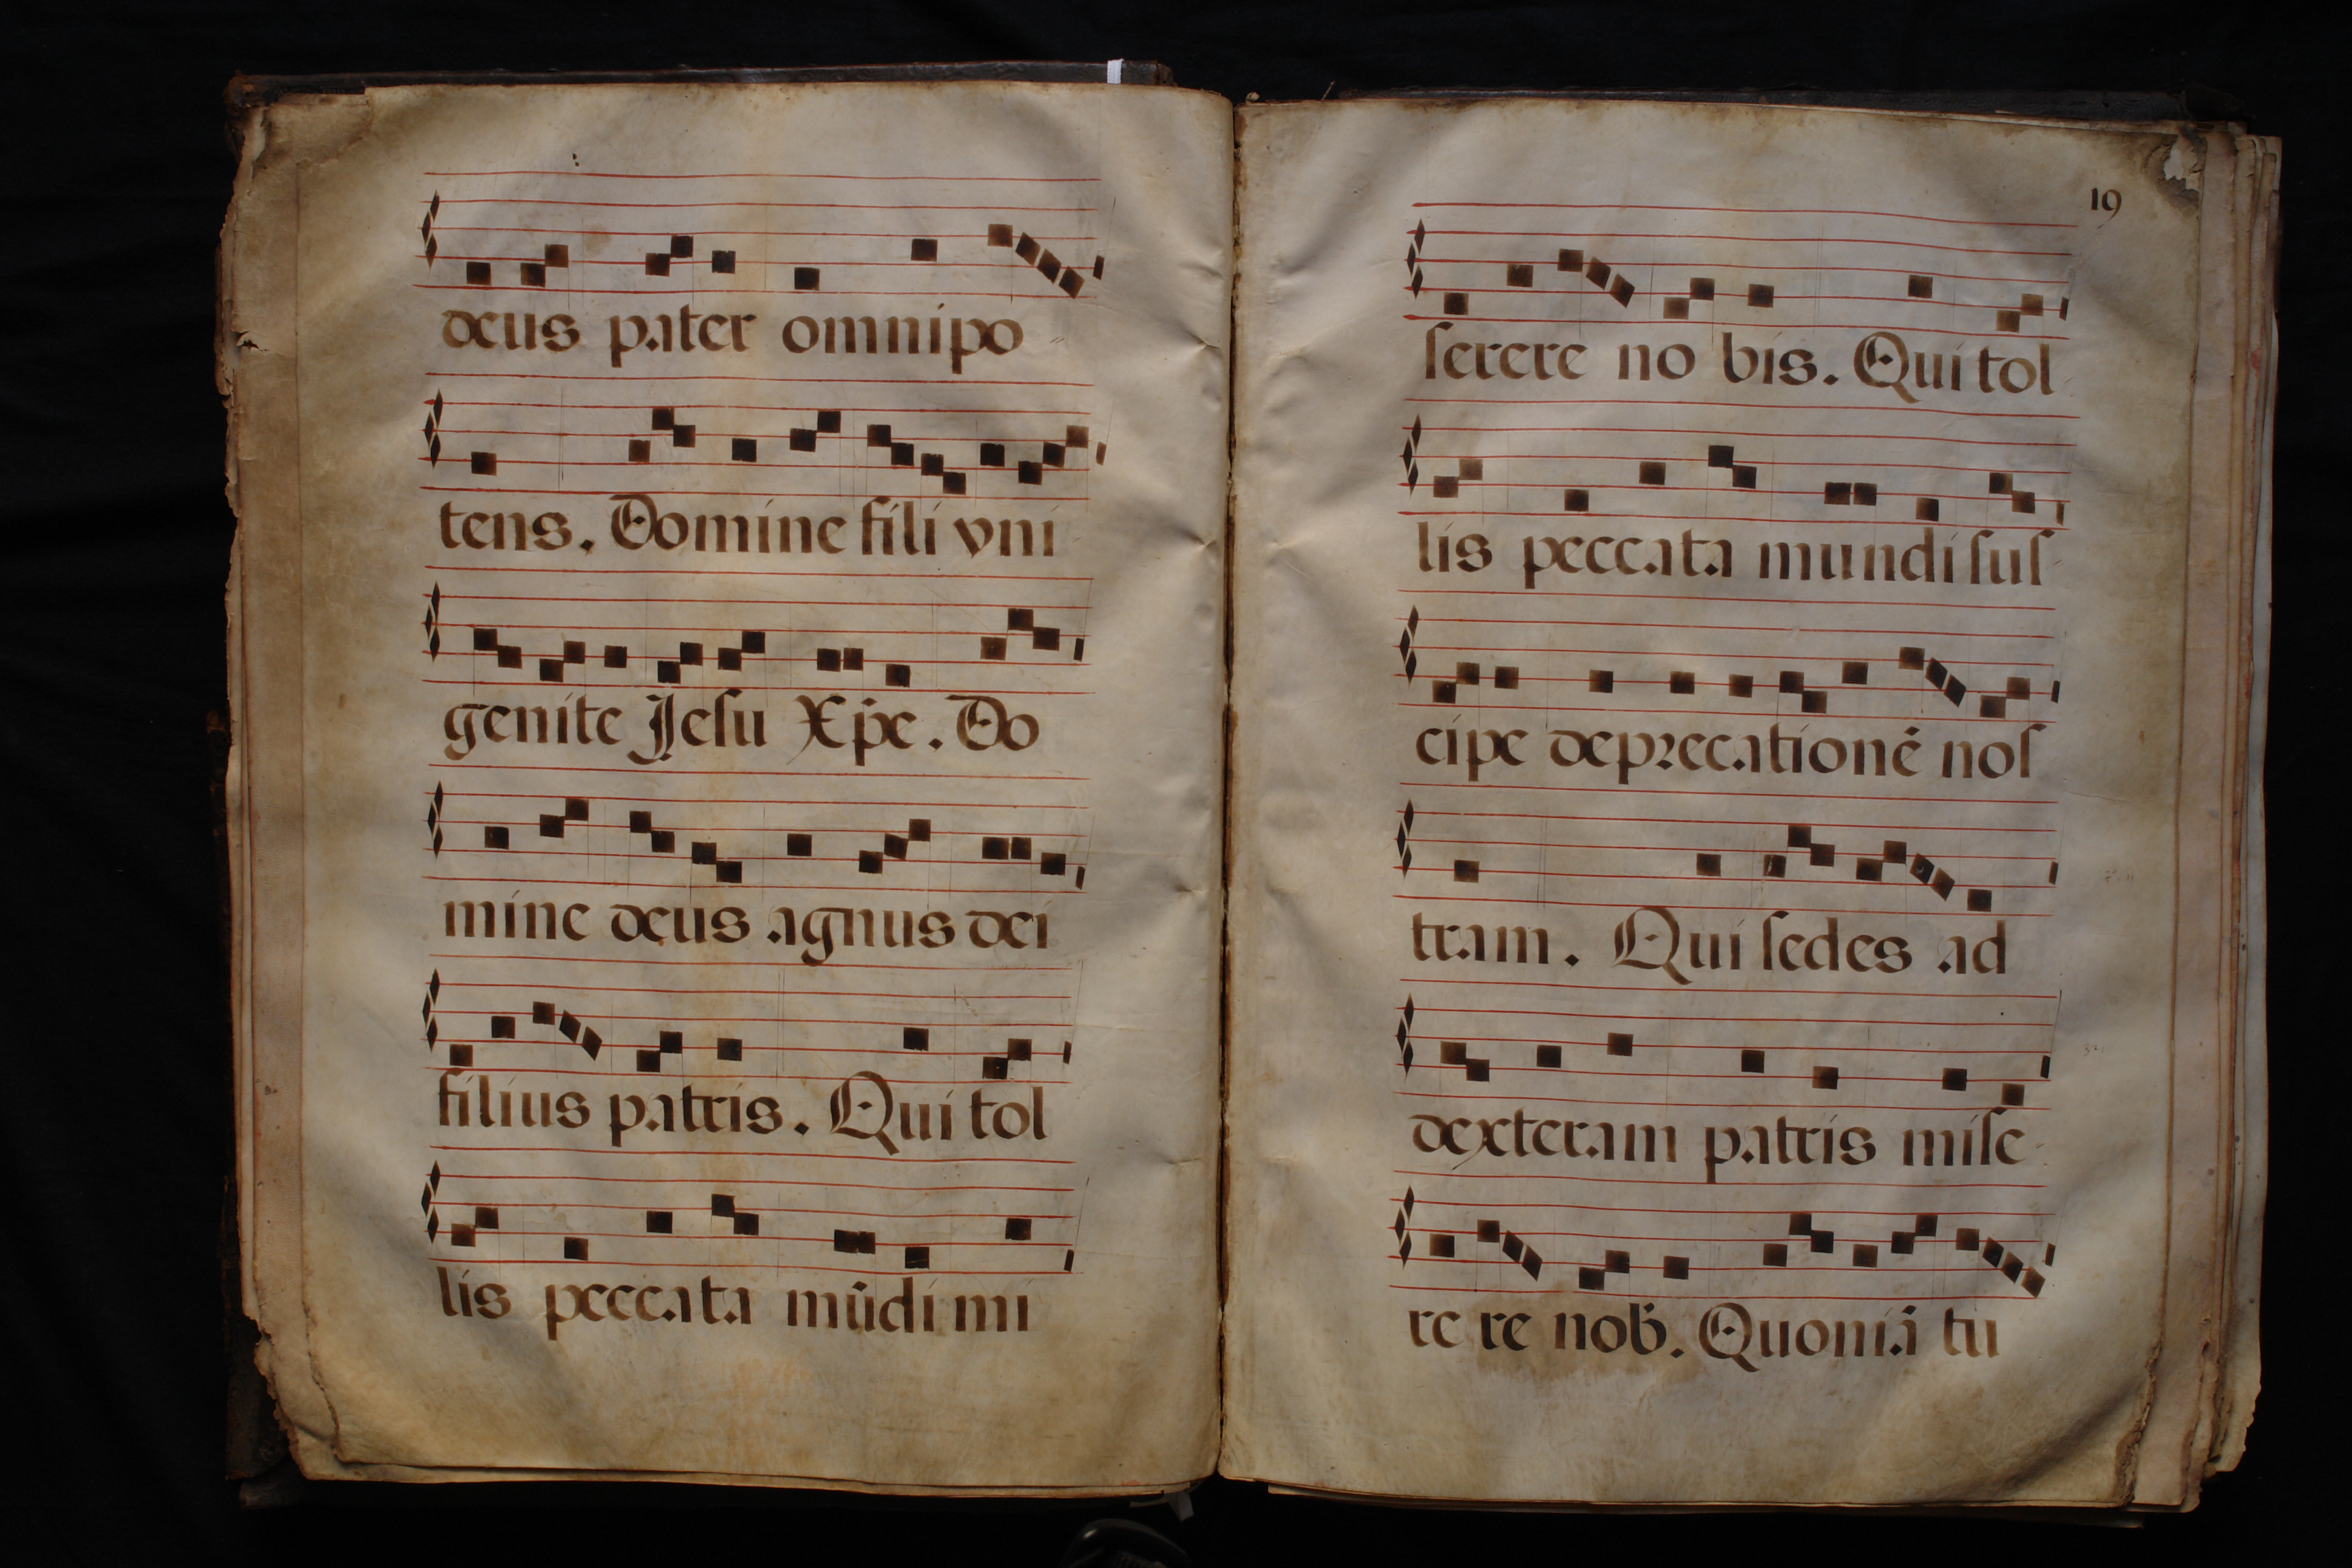 deus pater omnipo
tens. Domine fili vni
genite Jesu Xp̄e. Do
mine deus agnus dei
filius patris. Qui tol
lis peccata mūdi mi
19
ſerere no bis. Qui tol
lis peccata mundi ſuſ
cipe deprecationē noſ
tram. Qui ſedes ad
dexteram patris miſe
re re nob̄. Quoniā tu